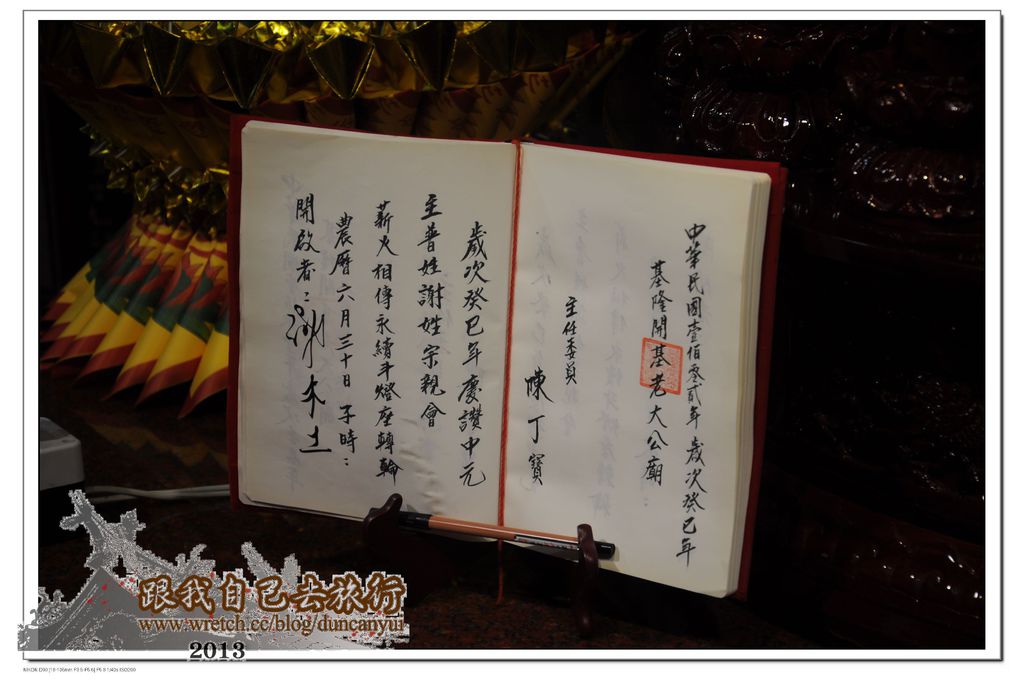 中華民國壹佰零貳年 歲次癸巳年
基隆開基老大公廟:
主任委員
陳丁寶
歲次癸巳年慶讚中元
主普姓謝姓宗親會
薪火相傳永續斗燈座轉輪
農曆六月三十日 子時:
開啟者:
木土
跟我自己去旅行
www.wretch.cc/blog/duncanyui
2013